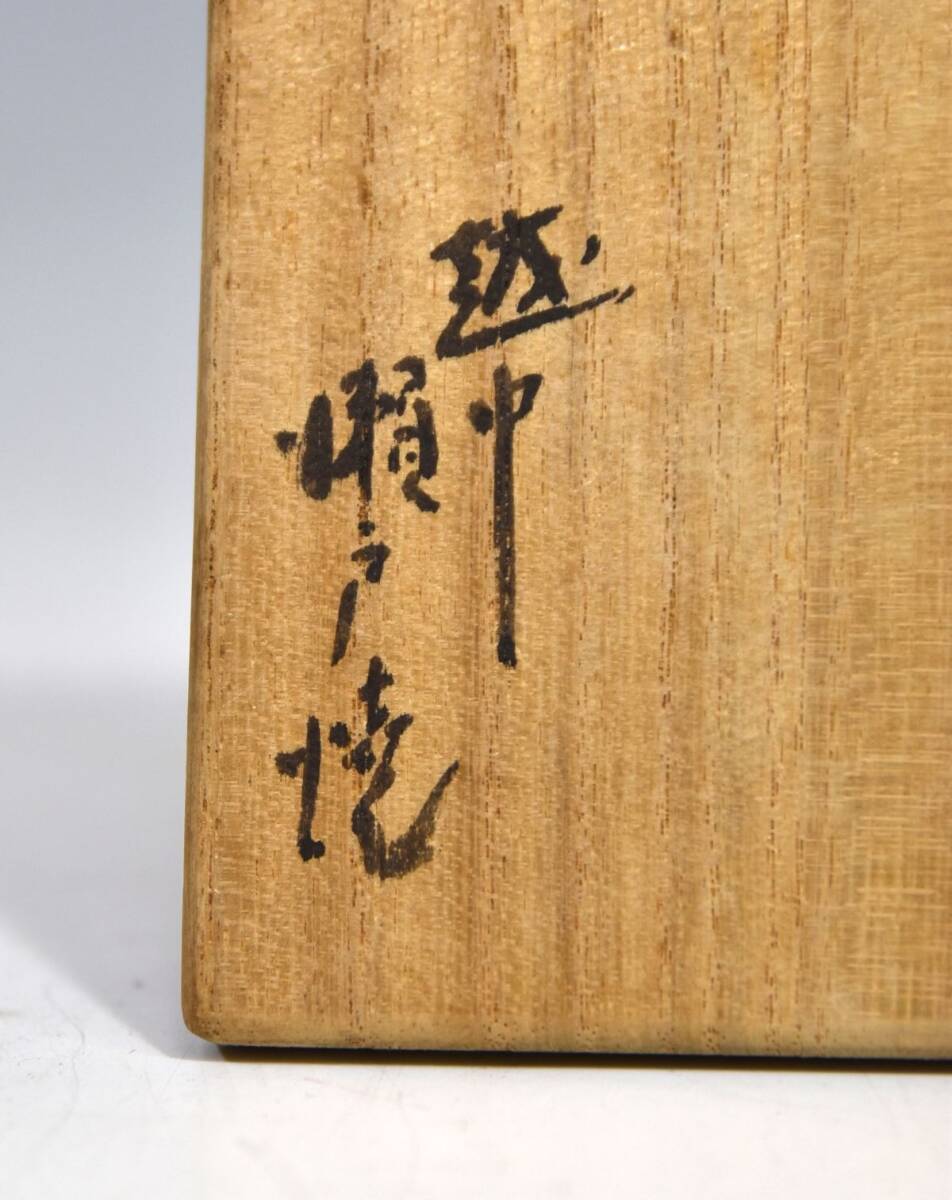 越中
瀬戸焼